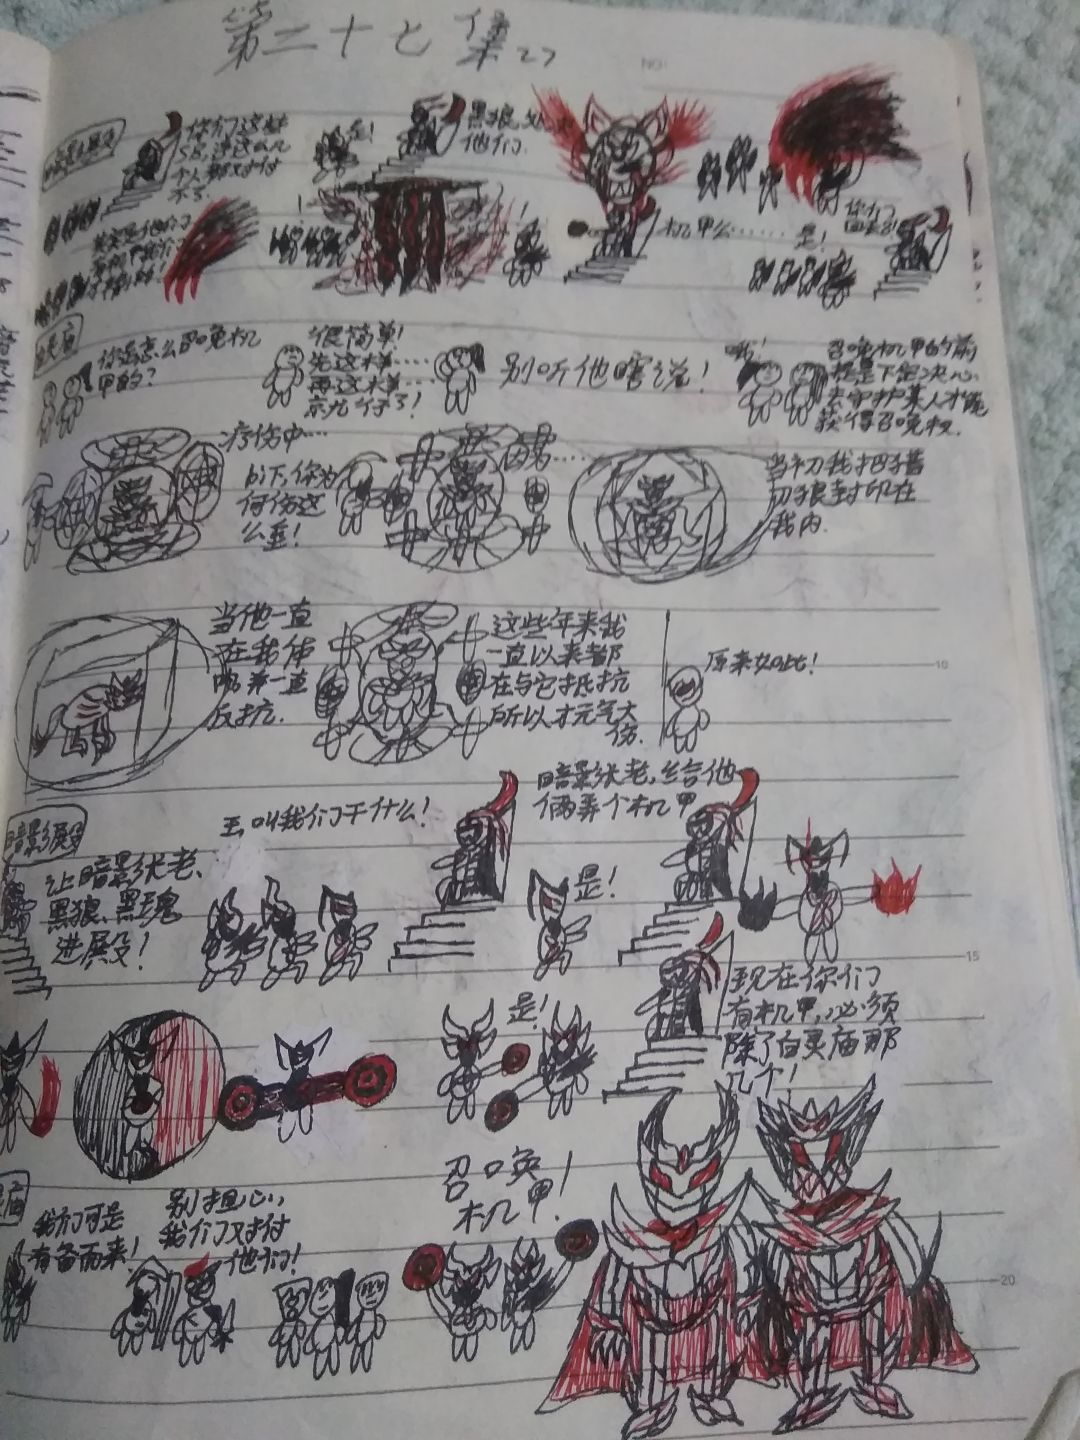 第二十七集 27
NO:
你们这些
个人都对付
不了.
是!
黑狼,
他们.
机甲么……
是!
你们
你话怎么召唤机
甲的?
很简单!
先这样……
再这样……
京九行了!
别听他瞎说!
哦!
召唤机甲的前
提是下定决心
去守护某人才能
获得召唤权.
疗伤中…
你为
何伤这
么重!
当初我把
狼封印在
我内.
当他一直
在我体
一直
反抗.
这些年来我
一直以来都
在与它抵抗
所以才元气大
伤.
原来如此!
10
暗影殿
让暗影张老、
黑狼、黑瑰
进殿!
王,叫我们干什么!
暗影张老,给他
俩弄个机甲
是!
15
是!
现在你们
有机甲,必须
除了白灵庙那
几个!
庙
我们可是
有备而来!
别担心,
我们对付
他们!
召唤
机甲!
20